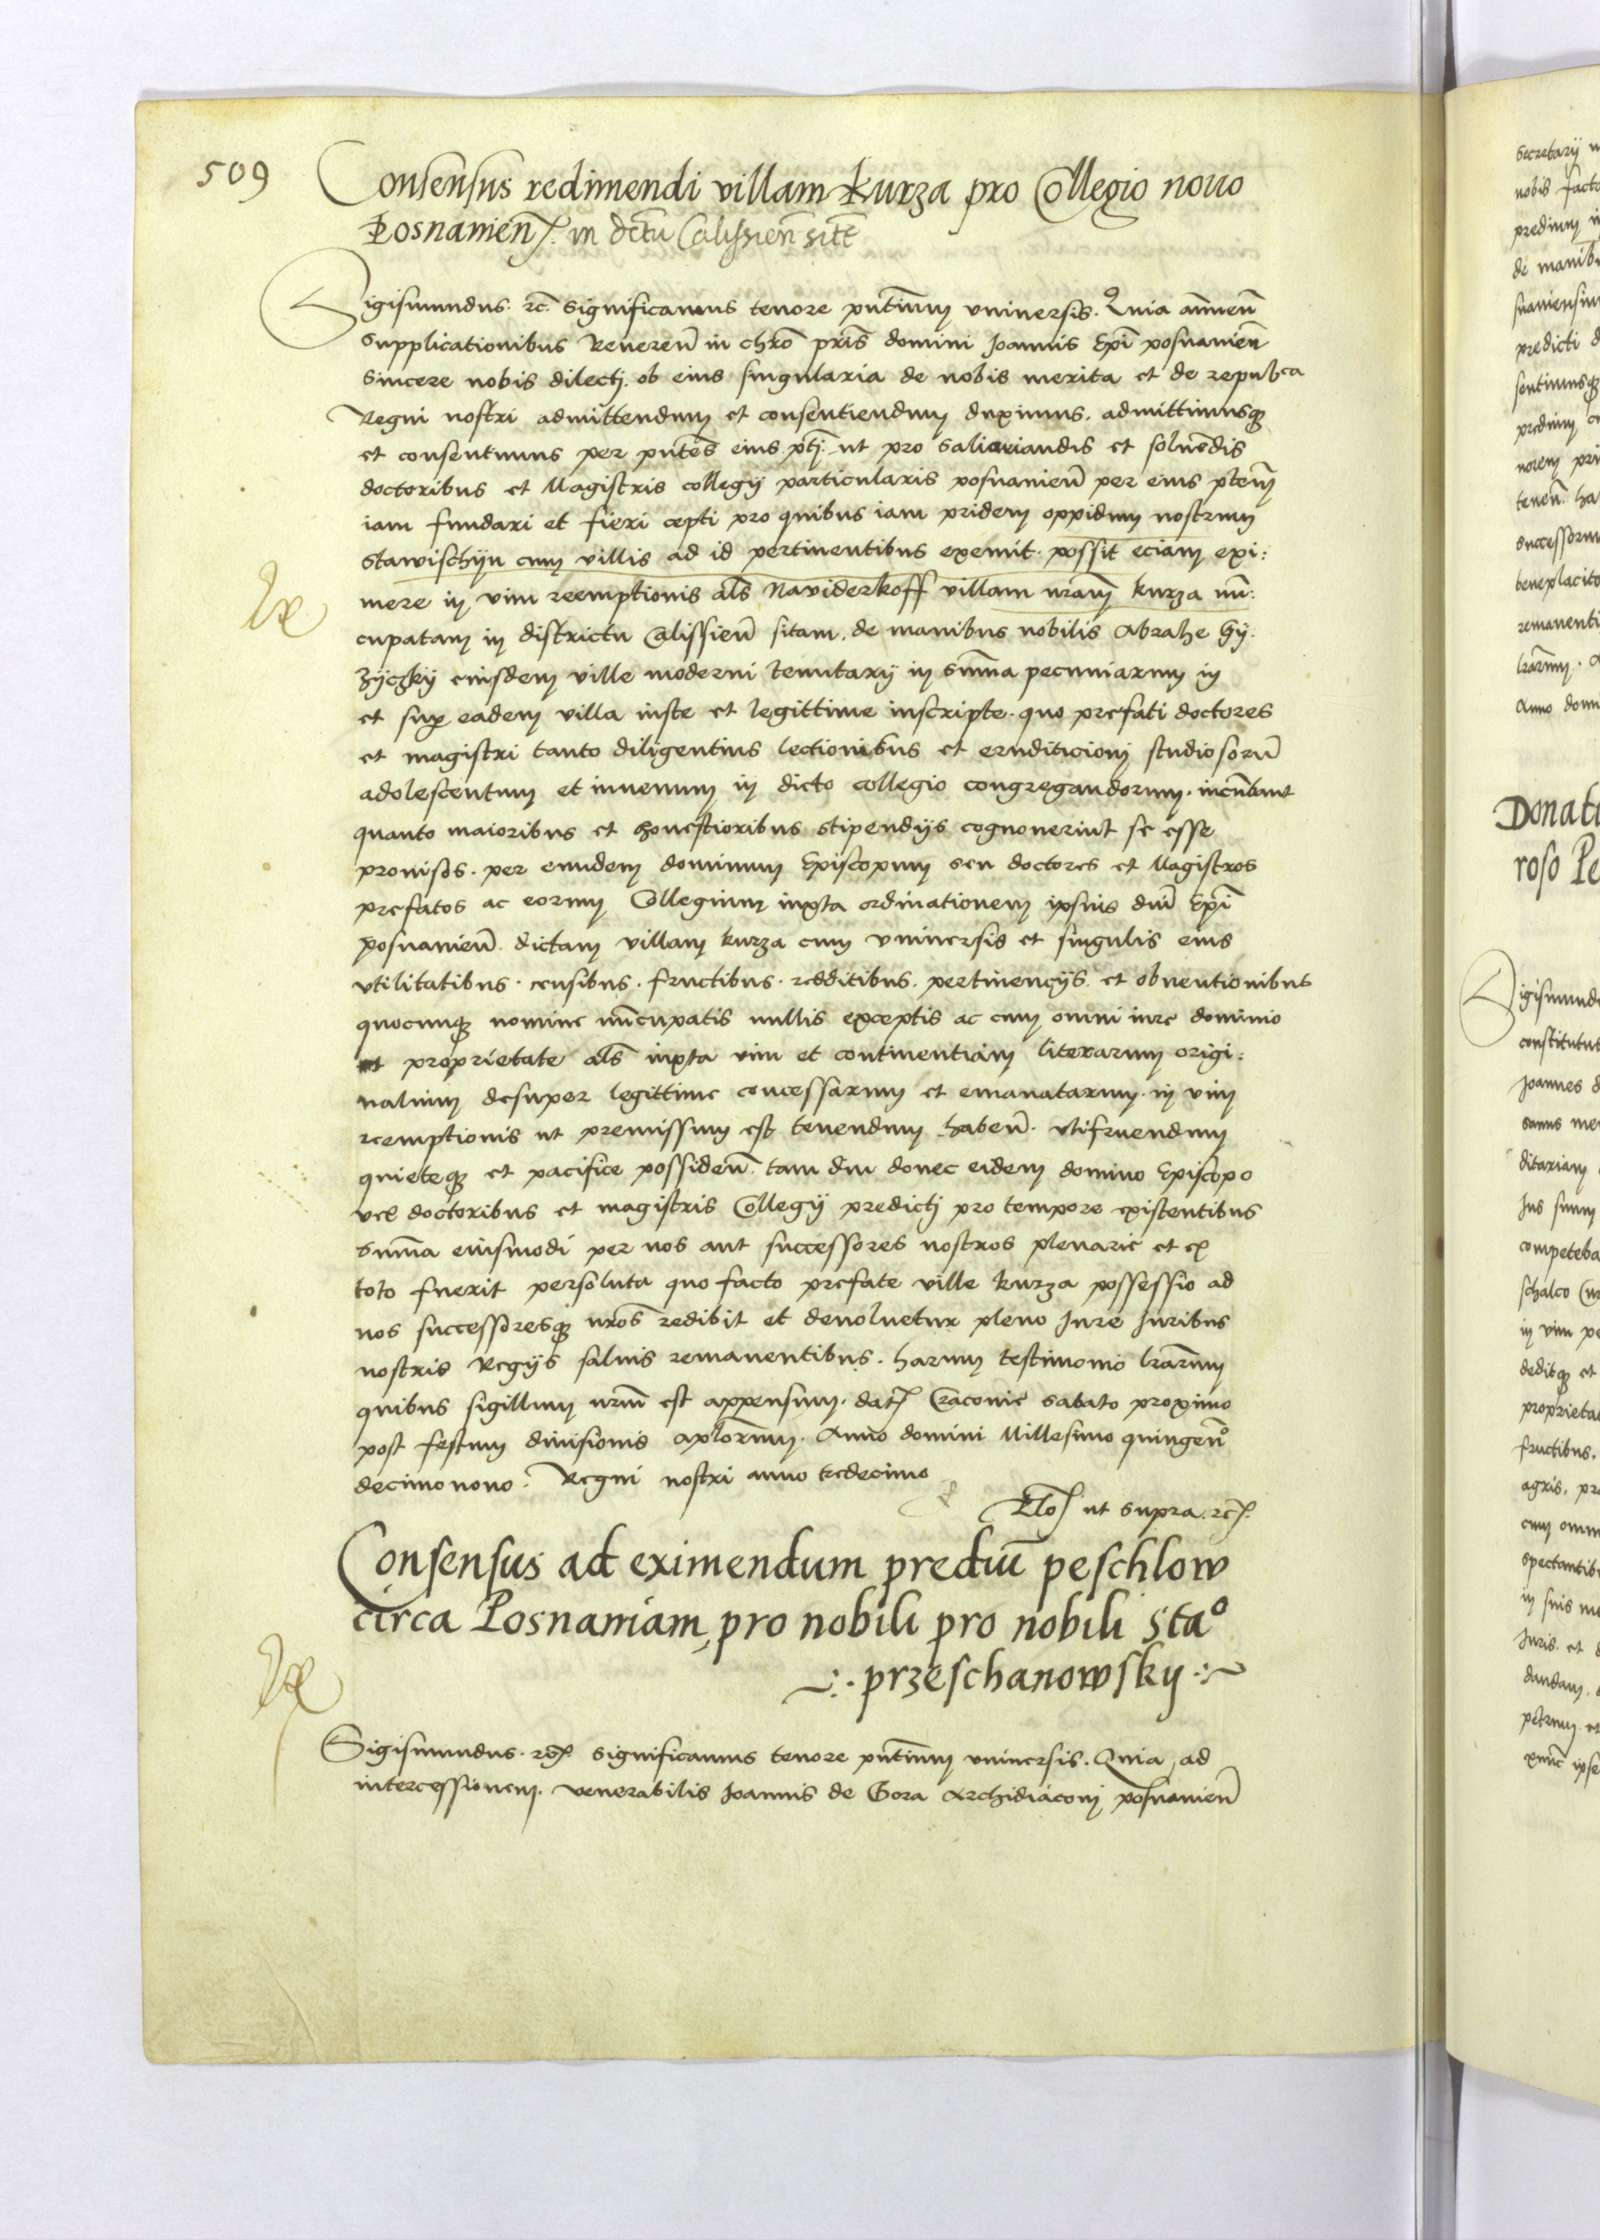 509
Consensus redimendi villam Kurza pro Collegio nouo
Posnanien. in dctu Calissien site
Sigismundus. rc. significamus tenore pntium vniuersis. Quia annuen
supplicationibus Reueren in chro pris domini Joannis Epi posnanien
sincere nobis dilecti. ob eius singularia de nobis merita et de repubca
Regni nostri admittendum et consentiendum duximus. admittimusq
et consentimus per pntes eius ptj. ut pro saliariandis et soluendis
doctoribus et Magistris collegij particularis posnanien per eius ptem
iam fundari et fieri cepti pro quibus iam pridem oppidum nostrum
Stawischijn cum villis ad id pertinentibus exemit. possit eciam exi:
mere in vim reemptionis als Naviderkoff villam nram kurza nu:
cupatam in districtu Calissien sitam. de manibus nobilis Abrahe Gij:
zijczkij eiusdem ville moderni tenutarij in summa pecuniarum in
et sup eadem villa iuste et legittime inscripte. quo prefati doctores
et magistri tanto diligentius lectionibus et erudicioni studiosoru
adolescentum et iuuenum in dicto collegio congregandorum. incubant
quanto maioribus et honestioribus stipendijs cognouerint se esse
prouisos. per eundem dominum Episcopum seu doctores et Magistros
prefatos ac eorum Collegium iuxta ordinationem ipsius dni Epi
posnanien. dictam villam kurza cum vniuersis et singulis eius
vtilitatibus. censibus. fructibus. redditibus. pertinencijs. et obuentionibus
quocunq nomine nucupatis nullis exceptis ac cum omni iure dominio
et proprietate als iuxta vim et continentiam literarum origi:
nalium desuper legittime concessarum et emanatarum. in vim
reemptionis ut premissum est tenendum haben. vtifruendum
quieteq et pacifice possiden. tam diu donec eidem domino Episcopo
vel doctoribus et magistris Collegij predicti pro tempore existentibus
summa eiusmodi per nos aut successores nostros plenarie et ex
toto fuerit persoluta quo facto prefate ville kurza possessio ad
nos successoresq nros redibit et deuoluetur pleno Jure Juribus
nostris Regijs saluis remanentibus. harum testimonio lrarum
quibus sigillum nrum est appensum. dat Craconie sabato proximo
post festum diuisionis aplorum. Anno domini Millesimo quingeno
decimonono. Regni nostri anno tredecimo
Rlo ut supra. rc.
Consensus ad eximendum prediu peschlow
circa Posnaniam, pro nobili pro nobili Stao
przeschanowskij
Sigismundus. rc. significamus tenore pntium vniuersis. Quia ad
intercessionem. venerabilis Joannis de Gora Archidiaconi posnanien